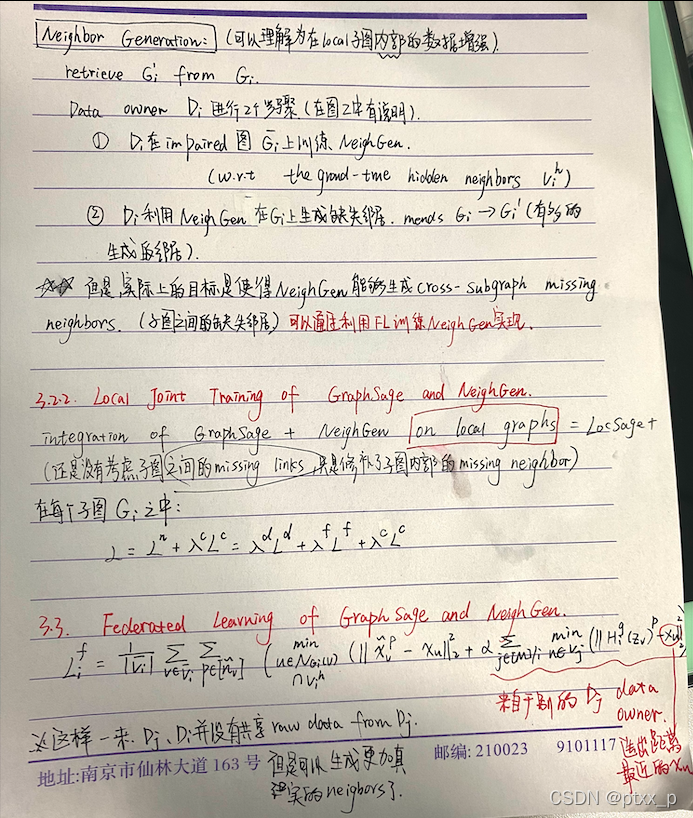 Neighbor Generation: (可以理解为在local子图内部的数据增强).
retrieve Gi' from Gi.
Data owner Di 进行2个步骤 (在图2中有说明).
① Di在impaired 图 Ḡi上训练 NeighGen.
(w.r.t the ground-true hidden neighbors Vi^h)
② Di利用NeighGen 在Gi上生成缺失邻居. mends Gi → Gi' (有的
生成的邻居).
但是实际上的目标是使得NeighGen能够生成cross-subgraph missing
neighbors. (子图之间的缺失邻居) 可以通过利用FL训练NeighGen实现.
3.2.2. Local Joint Training of GraphSage and NeighGen.
integration of GraphSage + NeighGen on local graphs = LocSage+
(还是没有考虑子图之间的missing links, 只是修补了子图内部的missing neighbor)
在每个子图 Gi 之中:
L = L^n + λ^c L^c = λ^d L^d + λ^f L^f + λ^c L^c
3.3. Federated Learning of GraphSage and NeighGen.
L_i^f = 1/|V̄i| Σ_{v∈V̄i} Σ_{p∈[ñv]} ( min_{u∈N_{Gi}(v)∩Vi^h} (||x̃_v^p - xu||_2^2 + α Σ_{j∈[M]/i} min_{u∈Vj} (||H_i^g(zv)^p - xu||_2^2)
来自于别的 Dj data
owner.
选出距离
最近的xu
※这样一来. Dj、Di并没有共享 raw data from Dj.
但是可以生成更加真
实的neigbors了.
地址:南京市仙林大道 163 号 邮编: 210023 9101117
CSDN @ptxx_p